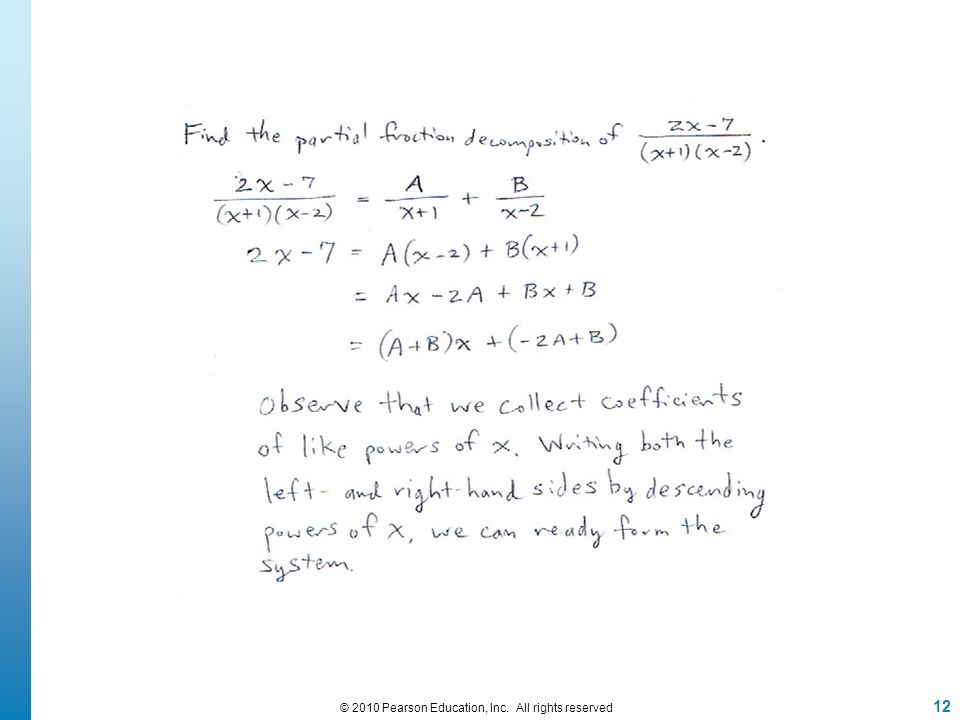 Find the partial fraction decomposition of (2x-7)/((x+1)(x-2)).
(2x-7)/((x+1)(x-2)) = A/(x+1) + B/(x-2)
2x-7 = A(x-2) + B(x+1)
= Ax - 2A + Bx + B
= (A+B)x + (-2A+B)
Observe that we collect coefficients
of like powers of x. Writing both the
left- and right-hand sides by descending
powers of x, we can ready form the
system.
© 2010 Pearson Education, Inc. All rights reserved
12